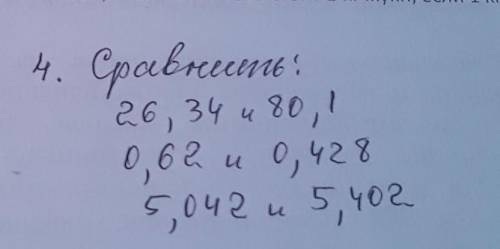 4. Сравнить:
26,34 и 80,1
0,62 и 0,428
5,042 и 5,402